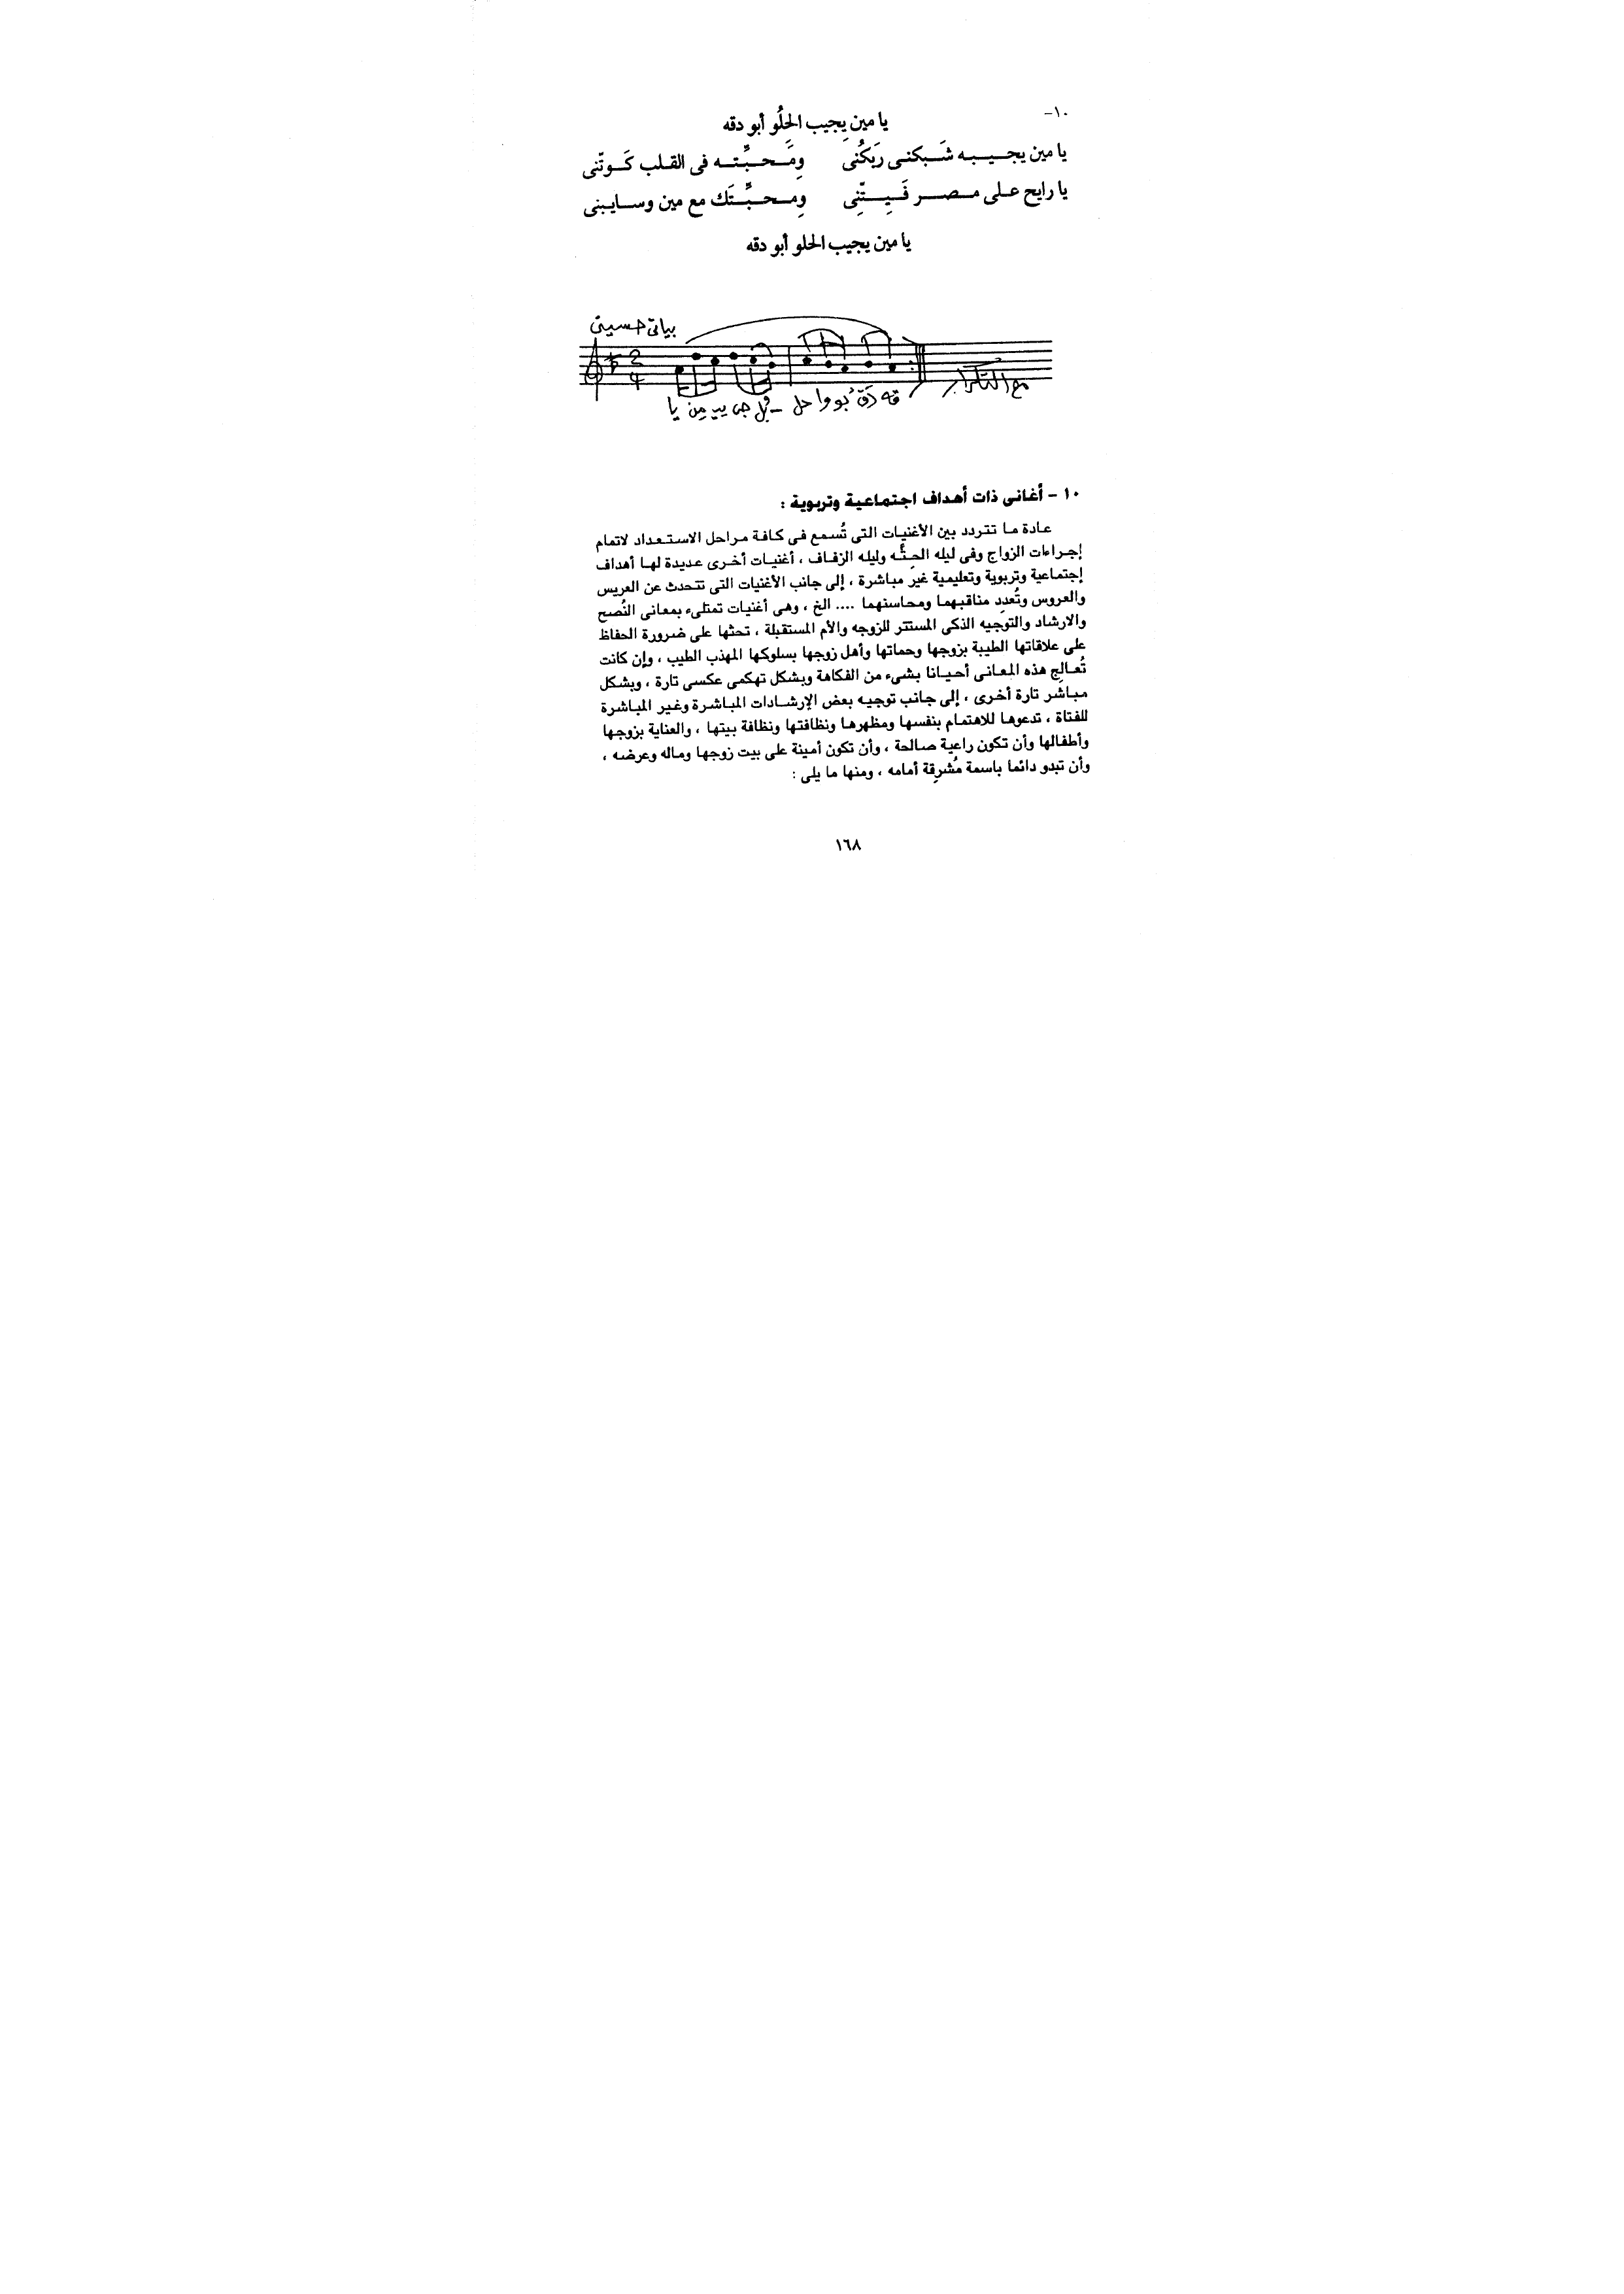 ١٠-
يا مين يِجيب الحِلُو أبو دقه
يا مين يجـــيـــبـه شَـــبكنـى رَبَكُنى وِمَـــحـــبِّـــتــه فى القـلب كَـــوتّنى
يا رايح عـلـى مـــصـــر فَـــيِـــتّنِى وِمـــحـــبِّـــتَك مع مين وســـايـبنى
يا مين يجيب الحلو أبو دقه
بياتى حسينى
2
4
يا مين يـ جى بل – حل وا بو دَقّ قه
مع التكرار
١٠ - أغانى ذات أهداف اجتماعية وتربوية :
عادة ما تتردد بين الأغنيات التى تُسمع فى كافة مراحل الاستعداد لاتمام
إجراءات الزواج وفى ليله الحِنَّه وليله الزفاف ، أغنيات أخرى عديدة لها أهداف
إجتماعية وتربوية وتعليمية غير مباشرة ، إلى جانب الأغنيات التى تتحدث عن العريس
والعروس وتُعددِ مناقبهما ومحاسنهما .... الخ ، وهى أغنيات تمتلىء بمعانى النُصح
والارشاد والتوجيه الذكى المستتر للزوجه والأم المستقبلة ، تحثها على ضرورة الحفاظ
على علاقاتها الطيبة بزوجها وحماتها وأهل زوجها بسلوكها المهذب الطيب ، وإن كانت
تُعالِج هذه المعانى أحيانا بشىء من الفكاهة وبشكل تهكمى عكسى تارة ، وبشكل
مباشر تارة أخرى ، إلى جانب توجيه بعض الإرشادات المباشرة وغير المباشرة
للفتاة ، تدعوها للاهتمام بنفسها ومظهرها ونظافتها ونظافة بيتها ، والعناية بزوجها
وأطفالها وأن تكون راعية صالحة ، وأن تكون أمينة على بيت زوجها وماله وعرضه ،
وأن تبدو دائما باسمة مُشرِقة أمامه ، ومنها ما يلى :
١٦٨